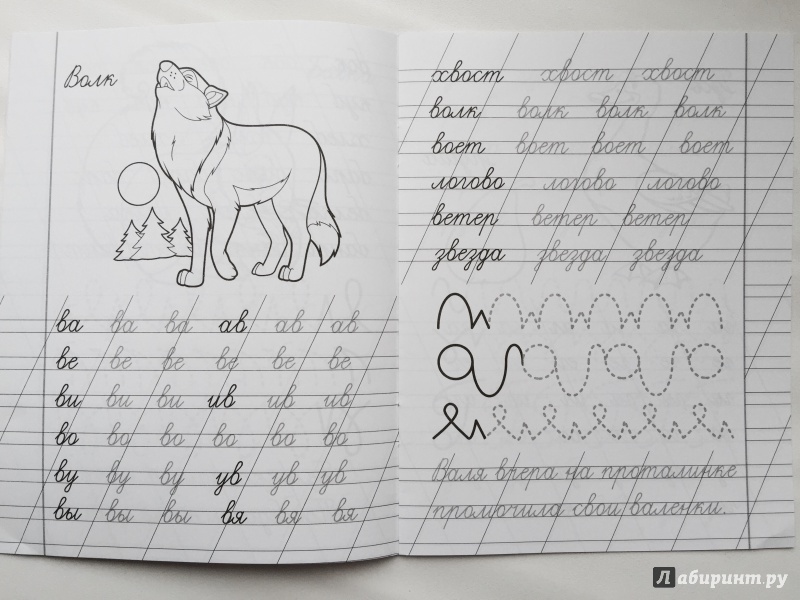 Волк
ва ва ва ав ав ав
ве ве ве ве ве ве
ви ви ви ив ив ив
во во во во во во
ву ву ву ув ув ув
вы вы вы вя вя вя
хвост хвост хвост
волк волк волк волк
воет воет воет воет
логово логово логово
ветер ветер ветер
звезда звезда звезда
Валя вчера на проталинке
промочила свои валенки.
Лабиринт.ру